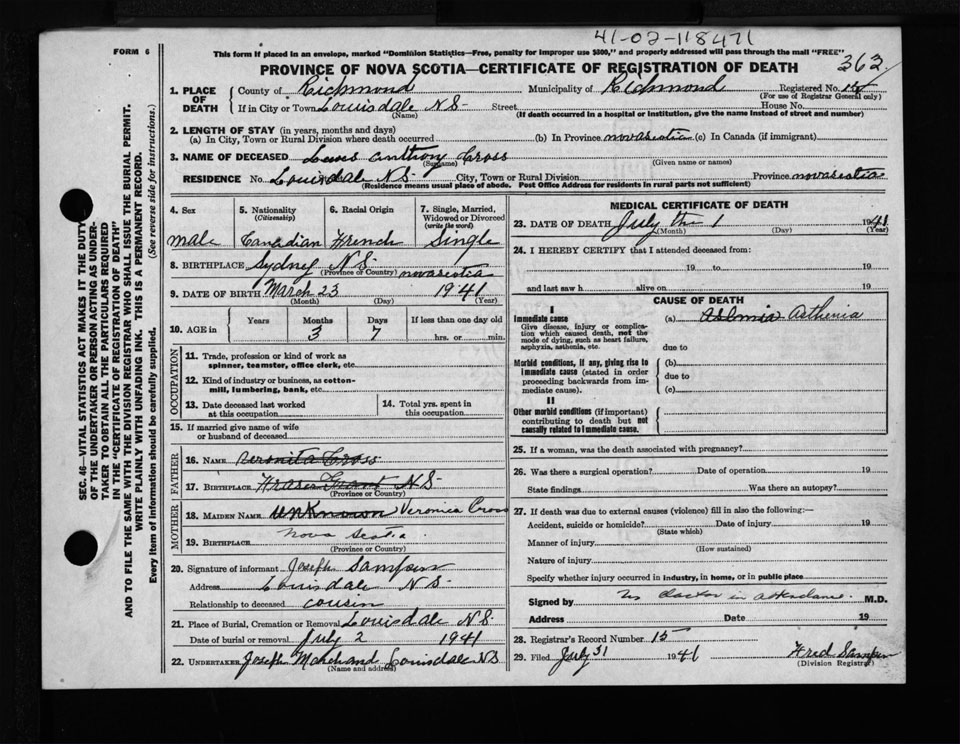 41-02-118471
FORM 6
This form if placed in an envelope, marked "Dominion Statistics—Free, penalty for improper use $300," and properly addressed will pass through the mail "FREE"
PROVINCE OF NOVA SCOTIA—CERTIFICATE OF REGISTRATION OF DEATH 362
1. PLACE OF DEATH County of Richmond Municipality of Richmond Registered No.
(For use of Registrar General only)
If in City or Town Louisdale N S- Street House No.
(Name) (If death occurred in a hospital or institution, give the name instead of street and number)
2. LENGTH OF STAY (in years, months and days)
(a) In City, Town or Rural Division where death occurred (b) In Province novascotia (c) In Canada (if immigrant)
3. NAME OF DECEASED Louis anthony Cross
(Surname) (Given name or names)
RESIDENCE No. Louisdale N S- City, Town or Rural Division Province novascotia
(Residence means usual place of abode. Post Office Address for residents in rural parts not sufficient)
4. Sex 5. Nationality (Citizenship) 6. Racial Origin 7. Single, Married, Widowed or Divorced (write the word)
male Canadian French Single
8. BIRTHPLACE Sydney N S- novascotia
(Province or Country)
9. DATE OF BIRTH March 23 1941
(Month) (Day) (Year)
10. AGE in Years Months Days If less than one day old
3 7 hrs. or min.
OCCUPATION
11. Trade, profession or kind of work as spinner, teamster, office clerk, etc.
12. Kind of industry or business, as cotton-mill, lumbering, bank, etc.
13. Date deceased last worked at this occupation
14. Total yrs. spent in this occupation
15. If married give name of wife or husband of deceased
FATHER
16. NAME Veronica Cross
17. BIRTHPLACE Fraser Grant N S-
(Province or Country)
MOTHER
18. MAIDEN NAME unknown Veronica Cross
19. BIRTHPLACE Nova Scotia
(Province or Country)
20. Signature of informant Joseph Sampson
Address Louisdale N S-
Relationship to deceased cousin
21. Place of Burial, Cremation or Removal Louisdale N S-
Date of burial or removal July 2 1941
22. UNDERTAKER Joseph Marchand Louisdale N S
(Name and address)
MEDICAL CERTIFICATE OF DEATH
23. DATE OF DEATH July the 1 1941
(Month) (Day) (Year)
24. I HEREBY CERTIFY that I attended deceased from:
19 to 19
and last saw h alive on 19
CAUSE OF DEATH
I
Immediate cause (a) Asthenia
Give disease, injury or complication which caused death, not the mode of dying, such as heart failure, asphyxia, asthenia, etc.
due to
Morbid conditions, if any, giving rise to immediate cause (stated in order proceeding backwards from immediate cause).
(b)
due to
(c)
II
Other morbid conditions (if important) contributing to death but not causally related to immediate cause.
25. If a woman, was the death associated with pregnancy?
26. Was there a surgical operation? Date of operation 19
State findings Was there an autopsy?
27. If death was due to external causes (violence) fill in also the following:—
Accident, suicide or homicide? Date of injury 19
(State which)
Manner of injury
(How sustained)
Nature of injury
Specify whether injury occurred in industry, in home, or in public place
Signed by No doctor in attendance. M.D.
Address Date 19
28. Registrar's Record Number 15
29. Filed July 31 1941 Fred Sampson
(Division Registrar)
SEC. 46—VITAL STATISTICS ACT MAKES IT THE DUTY
OF THE UNDERTAKER OR PERSON ACTING AS UNDER-
TAKER TO OBTAIN ALL THE PARTICULARS REQUIRED
IN THE "CERTIFICATE OF REGISTRATION OF DEATH"
AND TO FILE THE SAME WITH THE DIVISION REGISTRAR WHO SHALL ISSUE THE BURIAL PERMIT.
WRITE PLAINLY WITH UNFADING INK. THIS IS A PERMANENT RECORD.
Every item of information should be carefully supplied. (See reverse side for instructions.)